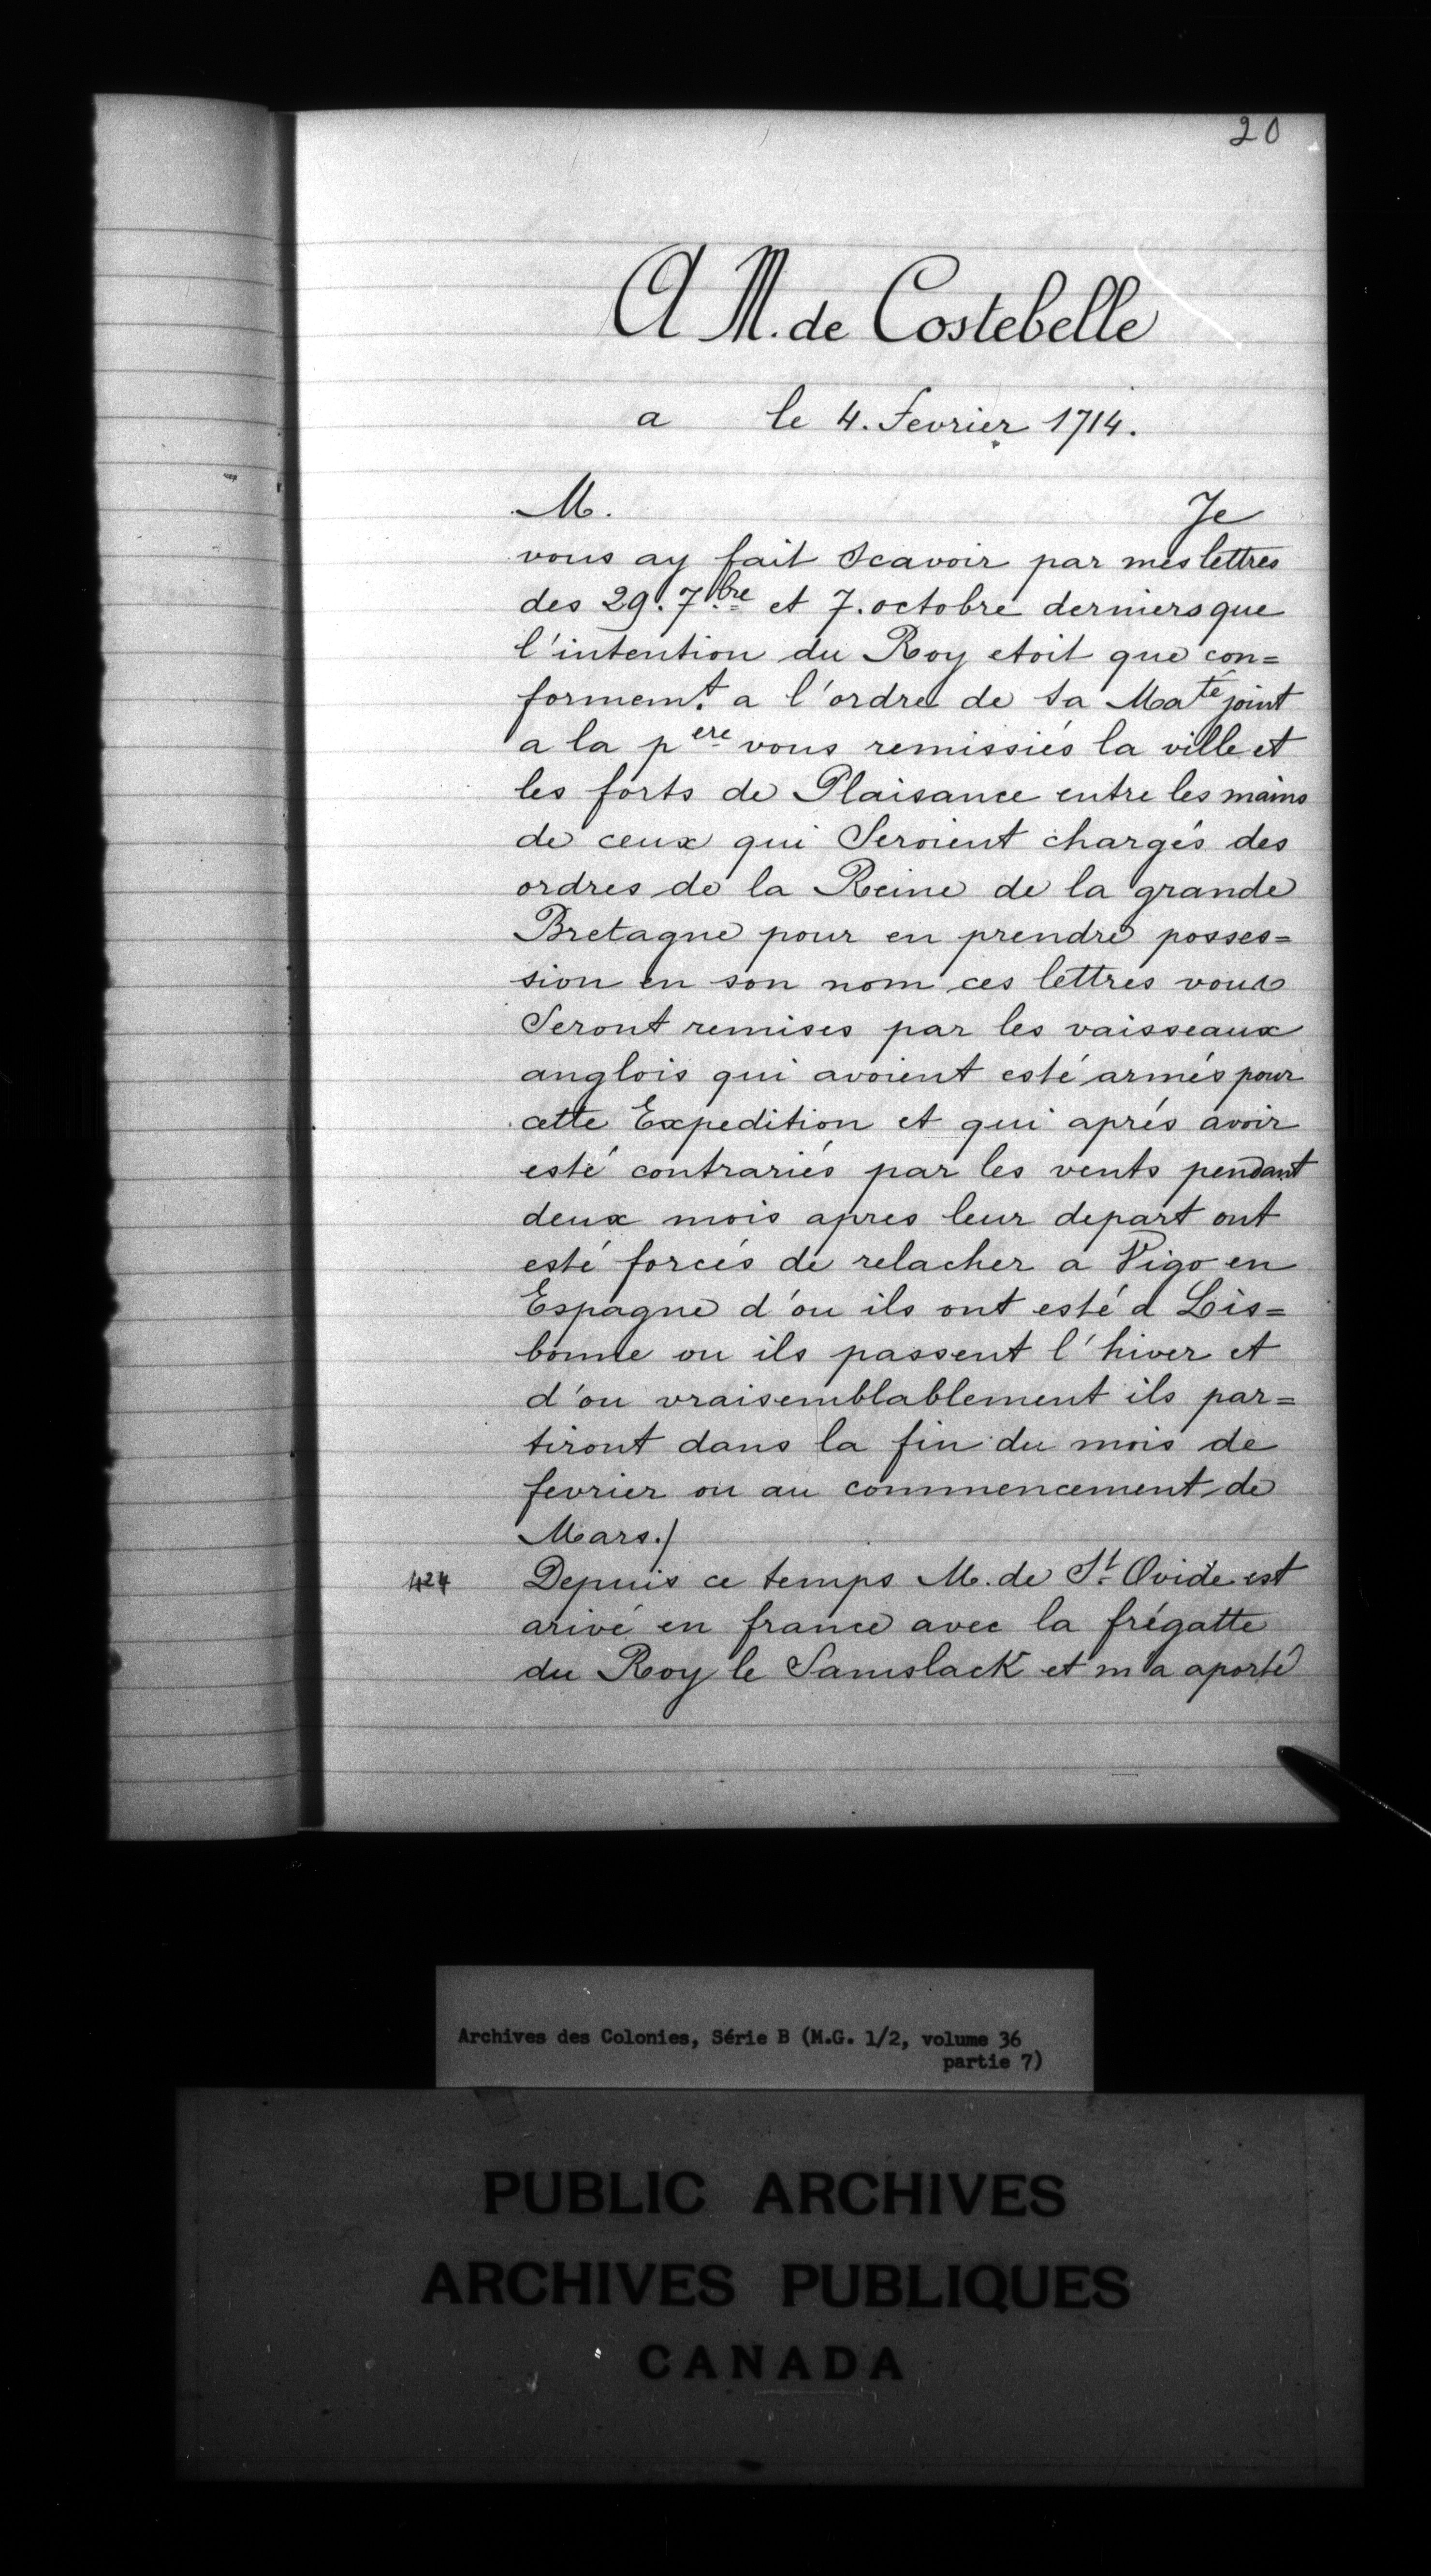 20
A M. de Costebelle
a le 4. Fevrier 1714.
M. Je
vous ay fait Scavoir par mes lettres
des 29. 7.bre et 7. octobre derniers que
l'intention du Roy etoit que con=
formem.t a l'ordre de sa Ma.té joint
a la p ere vous remissiés la ville et
les forts de Plaisance entre les mains
de ceux qui Seroient chargés des
ordres de la Reine de la grande
Bretagne pour en prendre posses=
sion en son nom ces lettres vous
Seront remises par les vaisseaux
anglois qui avoient esté armés pour
cette Expedition et qui aprés avoir
esté contrariés par les vents pendant
deux mois apres leur depart ont
esté forcés de relacher a Vigo en
Espagne d'ou ils ont esté a Lis=
bonne ou ils passent l'hiver et
d'ou vraisemblablement ils par=
tiront dans la fin du mois de
fevrier ou au commencement de
Mars./
424 Depuis ce temps M. de St. Ovide est
arivé en france avec la frégatte
du Roy le Samslack et m'a aporté
Archives des Colonies, Série B (M.G. 1/2, volume 36
partie 7)
PUBLIC ARCHIVES
ARCHIVES PUBLIQUES
CANADA